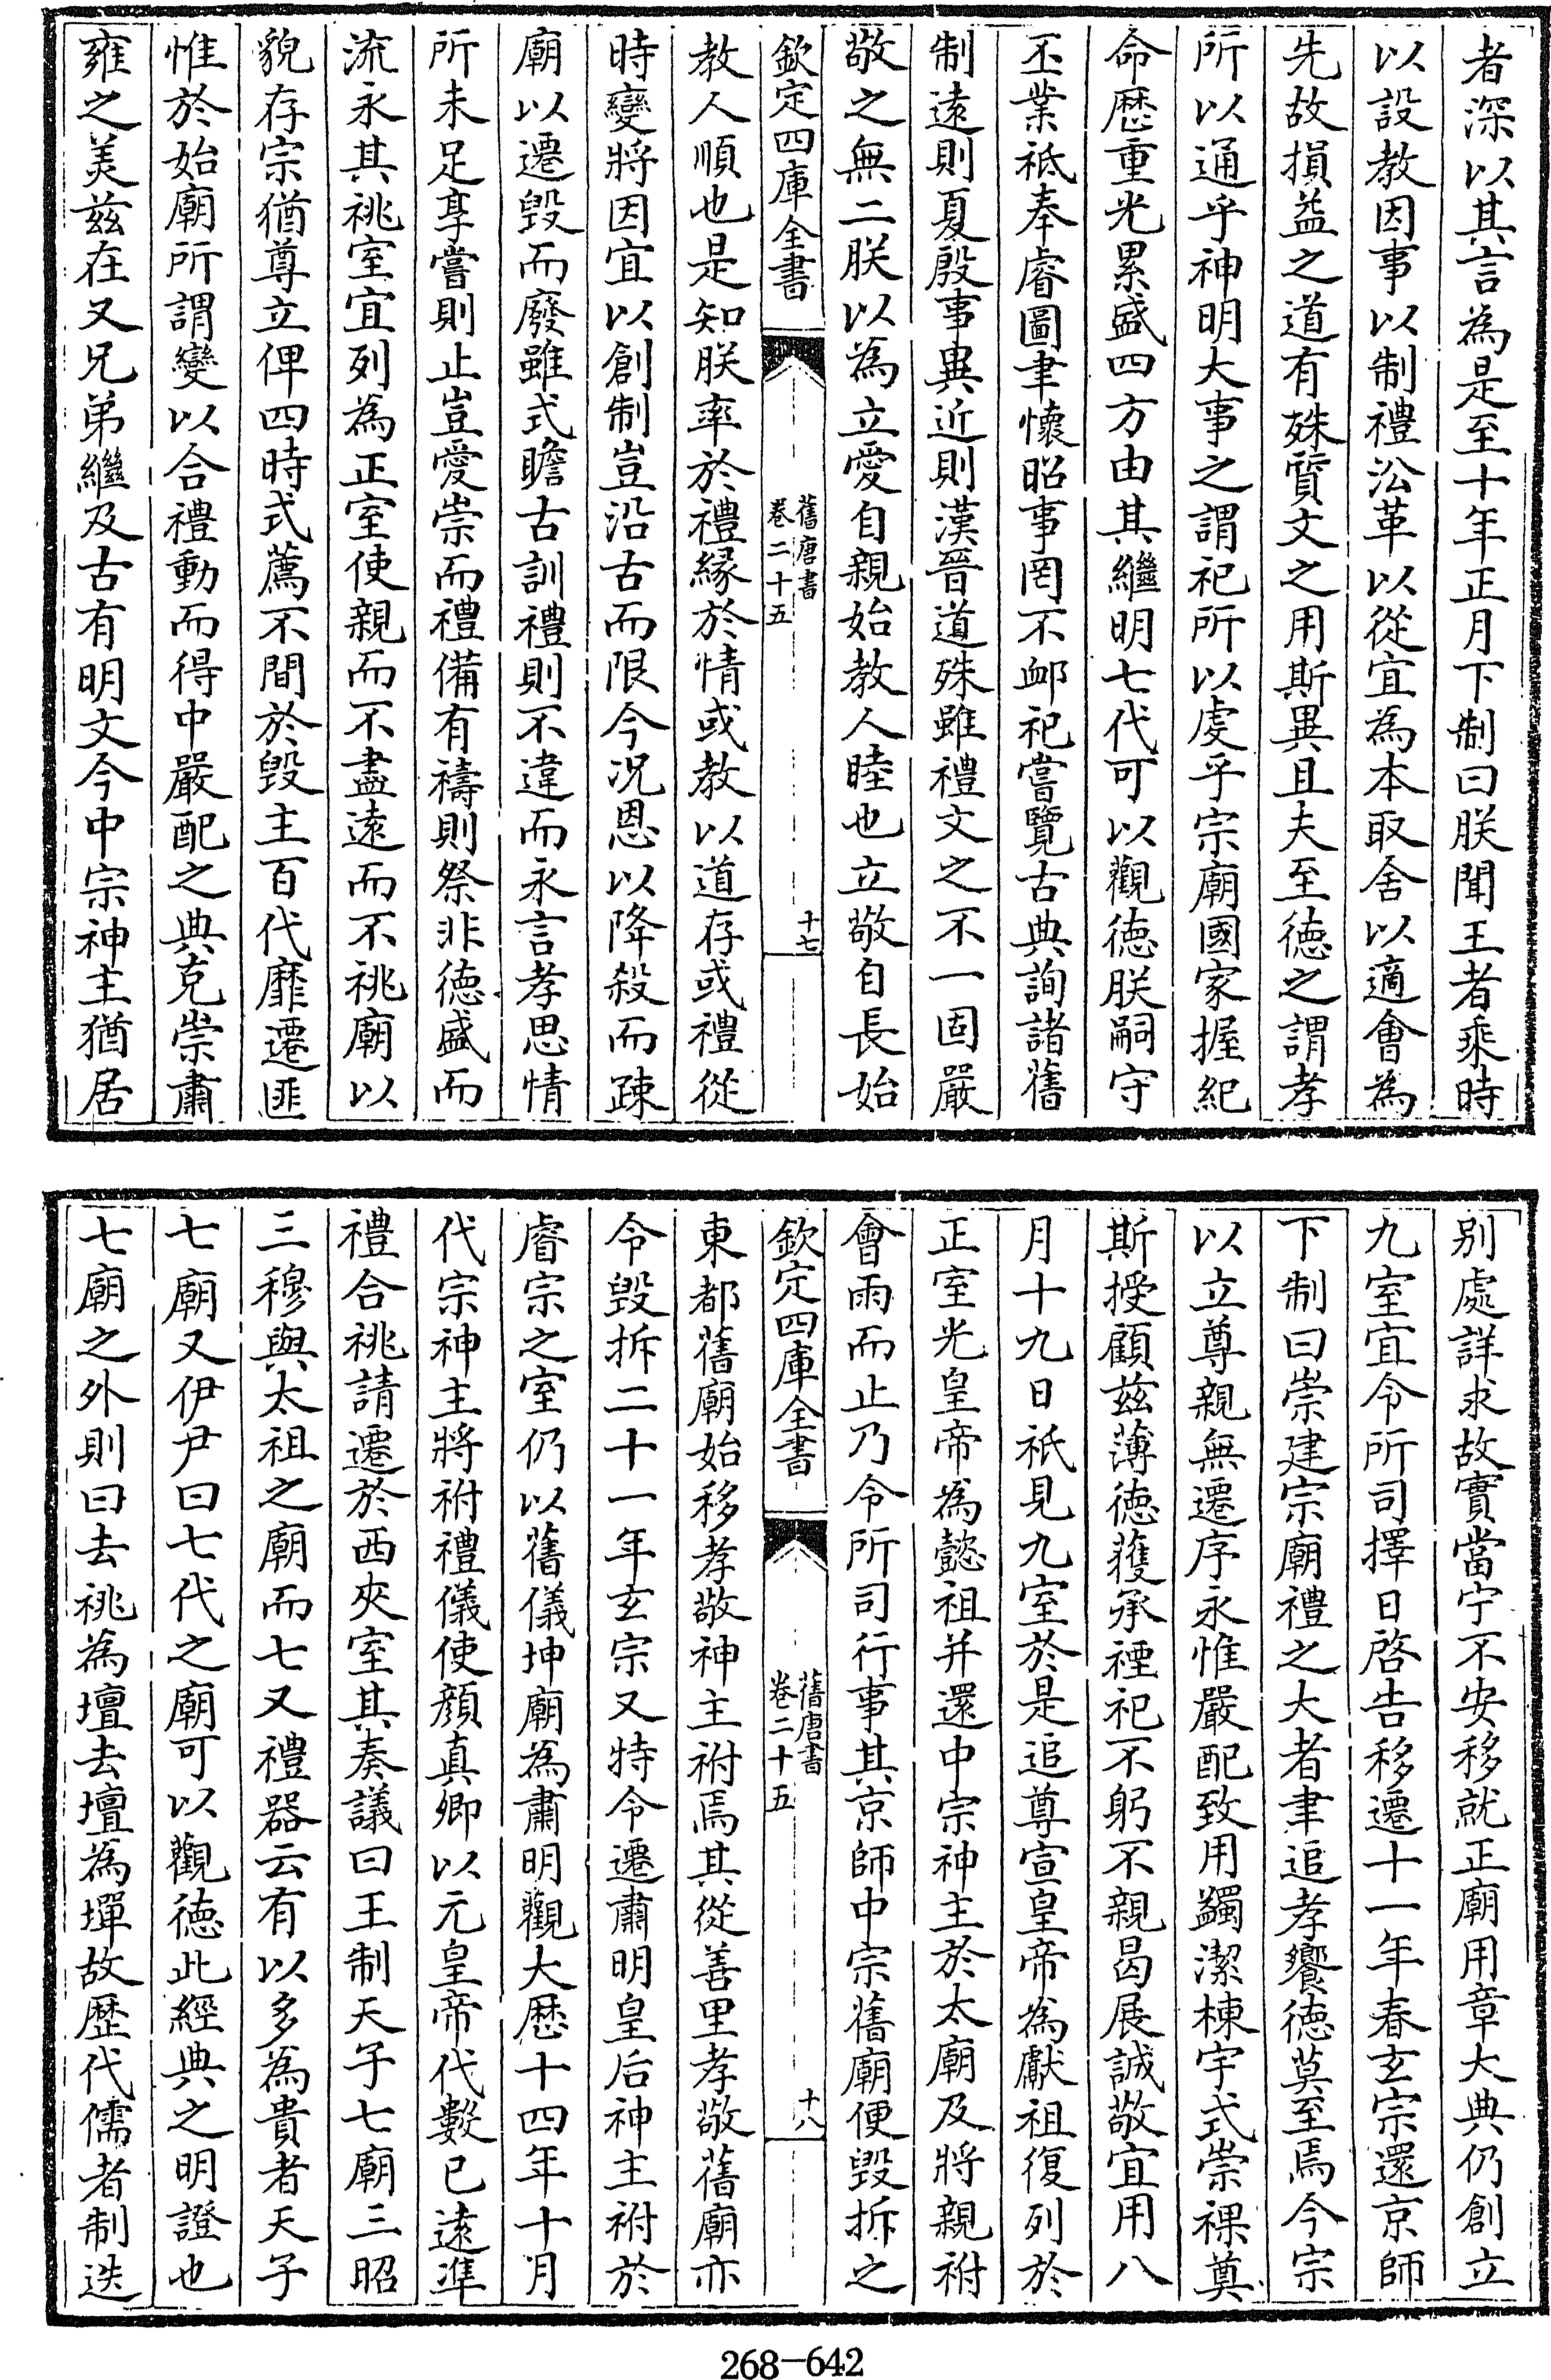 者深以其言為是至十年正月下制曰朕聞王者乘時
以設教因事以制禮沿革以從宜為本取舍以適會為
先故損益之道有殊質文之用斯異且夫至徳之謂孝
所以通乎神明大事之謂祀所以虔乎宗廟國家握紀
命厯重光累盛四方由其繼明七代可以觀徳朕嗣守
丕業祗奉睿圖聿懷昭事罔不䘏祀嘗覽古典詢諸舊
制遠則夏殷事異近則漢晉道殊雖禮文之不一固嚴
敬之無二朕以為立愛自親始教人睦也立敬自長始
欽定四庫全書
舊唐書
卷二十五
十七
教人順也是知朕率於禮緣於情或教以道存或禮從
時變將因宜以創制豈沿古而限今况恩以降殺而疎
廟以遷毁而廢雖式瞻古訓禮則不違而永言孝思情
所未足享嘗則止豈愛崇而禮備有禱則祭非徳盛而
流永其祧室宜列為正室使親而不盡遠而不祧廟以
貌存宗猶尊立俾四時式薦不間於毁主百代靡遷匪
惟於始廟所謂變以合禮動而得中嚴配之典克崇肅
雍之美兹在又兄弟繼及古有明文今中宗神主猶居
别處詳求故實當宁不安移就正廟用章大典仍創立
九室宜令所司擇日啓告移遷十一年春玄宗還京師
下制曰崇建宗廟禮之大者聿追孝饗徳莫至焉今宗
以立尊親無遷序永惟嚴配致用蠲潔棟宇式崇祼奠
斯授顧兹薄徳獲承禋祀不躬不親曷展誠敬宜用八
月十九日祗見九室於是追尊宣皇帝為獻祖復列於
正室光皇帝為懿祖并還中宗神主於太廟及將親祔
會雨而止乃令所司行事其京師中宗舊廟便毁拆之
欽定四庫全書
舊唐書
卷二十五
十八
東都舊廟始移孝敬神主祔焉其從善里孝敬舊廟亦
令毁拆二十一年玄宗又特令遷肅明皇后神主祔於
睿宗之室仍以舊儀坤廟為肅明觀大厯十四年十月
代宗神主將祔禮儀使顔真卿以元皇帝代數已遠準
禮合祧請遷於西夾室其奏議曰王制天子七廟三昭
三穆與太祖之廟而七又禮器云有以多為貴者天子
七廟又伊尹曰七代之廟可以觀徳此經典之明證也
七廟之外則曰去祧為壇去壇為墠故歴代儒者制迭
268-642